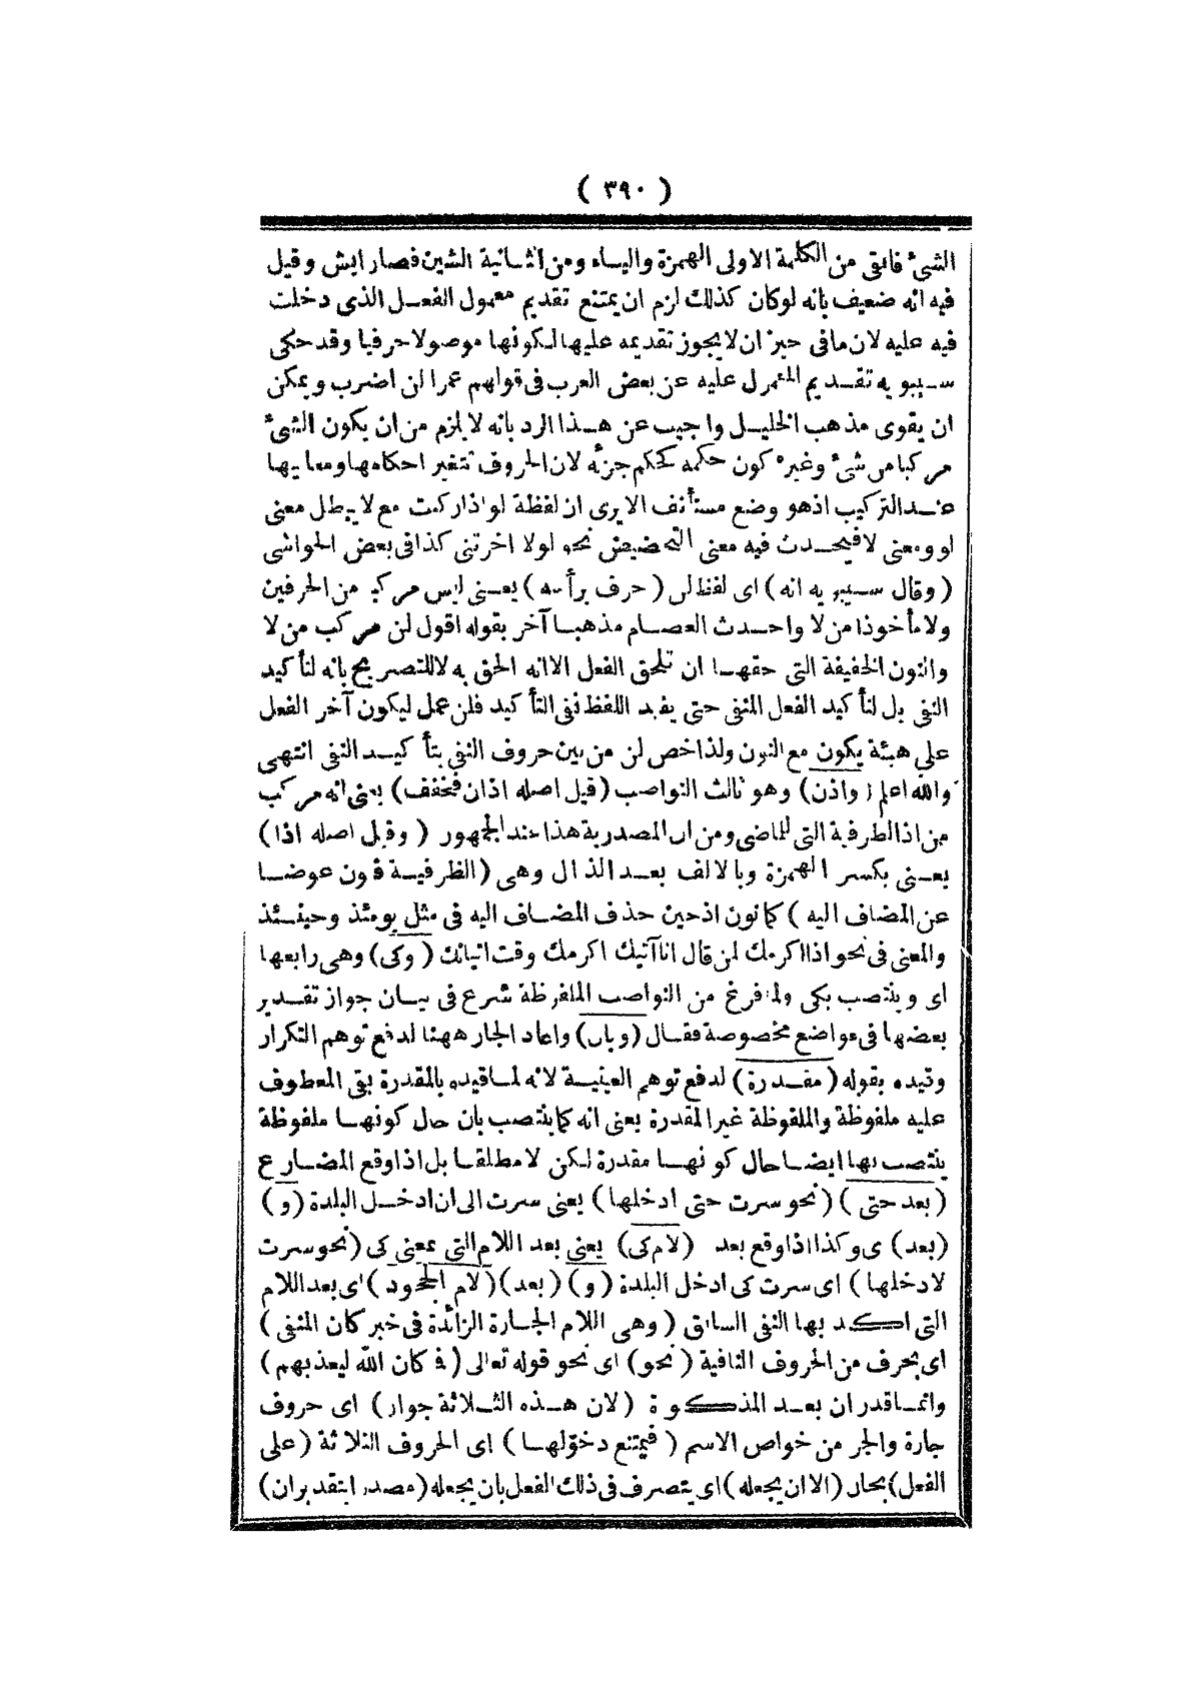 ( ٣٩٠ )
الشئ فابقى من الكلمة الاولى الهمزة والياء ومن الثانية الشين فصار ايش وقيل
فيه انه ضعيف بانه لوكان كذلك لزم ان يمتنع تقديم معمول الفعل الذى دخلت
فيه عليه لان مافى حيز ان لايجوز تقديمه عليها لكونها موصولا حرفيا وقد حكى
سيبويه تقديم المعمول عليه عن بعض العرب فى قولهم عمرا لن اضرب ويمكن
ان يقوى مذهب الخليل واجيب عن هذا الرد بانه لايلزم من ان يكون الشئ
مركبا من شئ وغيره كون حكمه كحكم جزئه لان الحروف تتغير احكامها ومعانيها
عند التركيب اذهو وضع مستأنف الايرى ان لفظة لو اذا ركبت مع لا يبطل معنى
لو ومعنى لا فيحدث فيه معنى التحضيض نحو لولا اخرتنى كذافى بعض الحواشى
( وقال سيبويه انه ) اى لفظ لن ( حرف برأسه ) يعنى ليس مركبا من الحرفين
ولا مأخوذا من لا واحدث العصام مذهبا آخر بقوله اقول لن مركب من لا
والنون الخفيفة التى حقها ان تلحق الفعل الا انه الحق به لا للتصريح بانه لتأكيد
النفى بل لتأكيد الفعل المنفى حتى يفيد اللفظ نفى التأكيد فلن عمل ليكون آخر الفعل
على هيئة يكون مع النون ولذا خص لن من بين حروف النفى بتأكيد النفى انتهى
والله اعلم ( واذن ) وهو ثالث النواصب ( قيل اصله اذان فخفف ) يعنى انه مركب
من اذ الظرفية التى للماضى ومن ان المصدرية هذا عند الجمهور ( وقيل اصله اذا )
يعنى بكسر الهمزة وبالالف بعد الذال وهى ( الظرفية فنون عوضا
عن المضاف اليه ) كمانون اذحين حذف المضاف اليه فى مثل يومئذ وحينئذ
والمعنى فى نحو اذا اكرمك لمن قال انا آتيك اكرمك وقت اتيانك ( وكى ) وهى رابعها
اى وينتصب بكى ولما فرغ من النواصب الملفوظة شرع فى بيان جواز تقدير
بعضها فى مواضع مخصوصة فقال ( وبان ) واعاد الجار ههنا لدفع توهم التكرار
وقيده بقوله ( مقدرة ) لدفع توهم العينية لانه لما قيده بالمقدرة بقى المعطوف
عليه ملفوظة والملفوظة غير المقدرة يعنى انه كما ينتصب بان حال كونها ملفوظة
ينتصب بها ايضا حال كونها مقدرة لكن لا مطلقا بل اذا وقع المضارع
( بعد حتى ) ( نحو سرت حتى ادخلها ) يعنى سرت الى ان ادخل البلدة ( و )
( بعد ) ى وكذا اذا وقع بعد ( لام كى ) يعنى بعد اللام التى بمعنى كى ( نحو سرت
لادخلها ) اى سرت كى ادخل البلدة ( و ) ( بعد ) ( لام الجحود ) اى بعد اللام
التى اكد بها النفى السابق ( وهى اللام الجارة الزائدة فى خبر كان المنفى )
اى بحرف من الحروف النافية ( نحو ) اى نحو قوله تعالى ( فـ كان الله ليعذبهم )
وانما قدر ان بعد المذكورة ( لان هذه الثلاثة جوار ) اى حروف
جارة والجر من خواص الاسم ( فيمتنع دخولها ) اى الحروف الثلاثة ( على
الفعل ) بحال ( الا ان يجعله ) اى يتصرف فى ذلك الفعل بان يجعله ( مصدرا بتقدير ان )